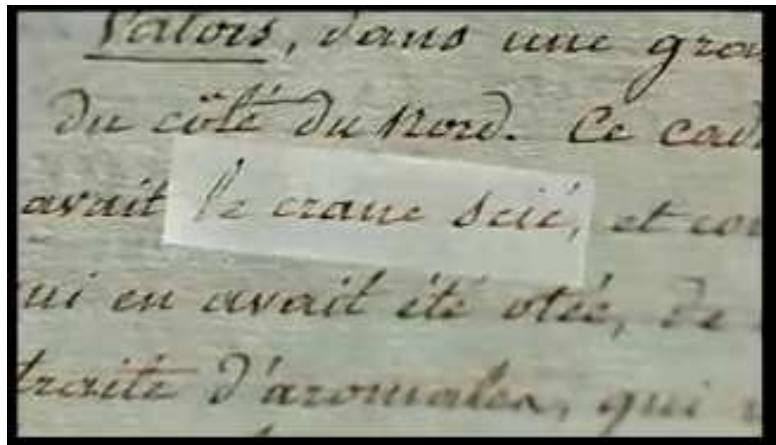 Valois, dans une gra
du côté du Nord. Ce cad
avait le crane scié, et co
ui en avait été otée, de
traite d'aromates, qui